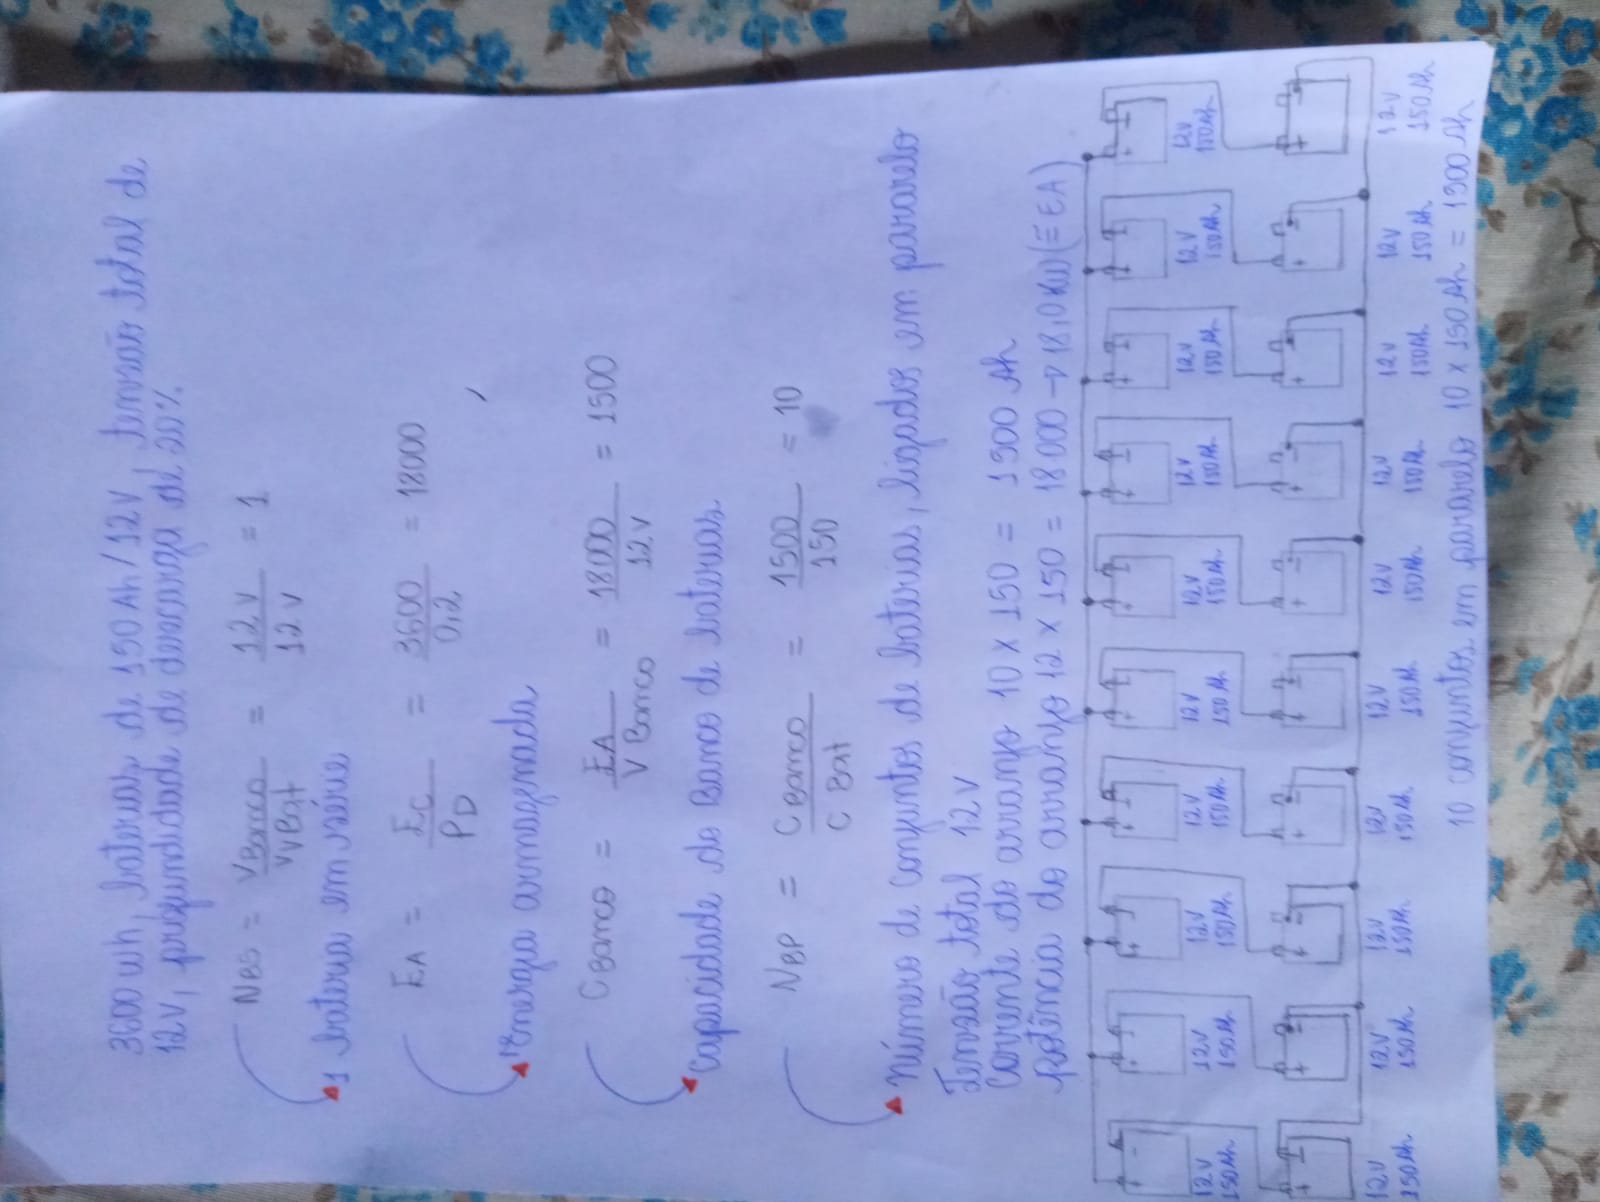 3600 wh, baterias de 150 Ah/12V, tensão total de
12V, profundidade de descarga de 20%
NBS = VBanco / VVBat = 12V / 12V = 1
1 bateria em série
EA = EC / PD = 3600 / 0,2 = 18000
Energia armagenada
CBanco = EA / VBanco = 18000 / 12V = 1500
capacidade do Banco de baterias.
NBP = CBanco / CBat = 1500 / 150 = 10
Número de conjuntos de baterias, ligados em pararelo
Tensão total 12V
Corrente do arranjo 10 x 150 = 1500 Ah
potência do arranjo 12 x 150 = 18000 → 18,0 KW (= EA)
12V 12V 12V 12V 12V 12V 12V 12V 12V 12V
150Ah 150Ah 150Ah 150Ah 150Ah 150Ah 150Ah 150Ah 150Ah 150Ah
12V 12V 12V 12V 12V 12V 12V 12V 12V 12V
150Ah 150Ah 150Ah 150Ah 150Ah 150Ah 150Ah 150Ah 150Ah 150Ah
10 conjuntos em pararelo 10 x 150 Ah = 1500 Ah